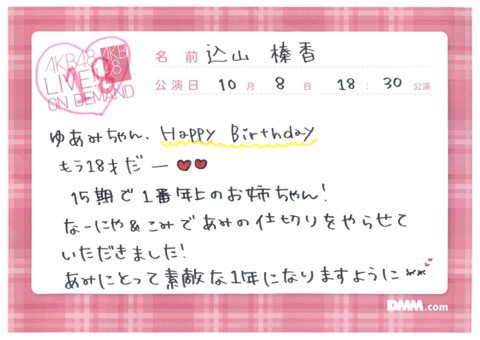 AKB48
LIVE!!
ON DEMAND
AKB
48
18
名前 込山榛香
公演日 10月8日 18:30公演
ゆあみちゃん、Happy Birthday
もう18才だー
15期で1番年上のお姉ちゃん!
なーにゃ&こみであみの仕切りをやらせて
いただきました!
あみにとって素敵な1年になりますように
DMM.com